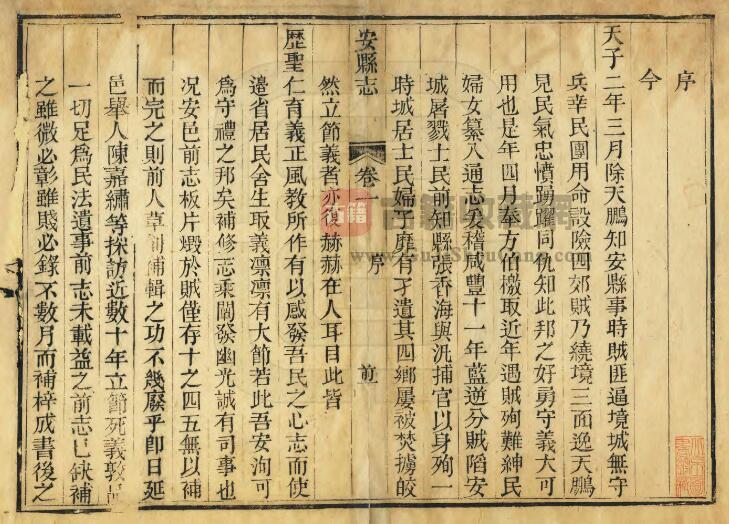 序
今
天子二年三月除天鵬知安縣事時賊匪逼境城無守
兵幸民團用命設險四郊賊乃繞境三面逸天鵬
見民氣忠憤踴躍同仇知此邦之好勇守義大可
用也是年四月奉方伯檄取近年遇賊殉難紳民
婦女纂入通志爰稽咸豐十一年藍逆分賊陷安
城屠戮士民前知縣張香海與汛捕官以身殉一
時城居士民婦子靡有孑遺其四鄉屢被焚擄皎
安縣志
卷一
序
前
然立節義者亦復赫赫在人耳目此皆
歷聖仁育義正風教所作有以感發吾民之心志而使
邊省居民舍生取義凛凛有大節若此吾安洵可
爲守禮之邦矣補修志乘闡發幽光誠有司事也
况安邑前志板片燬於賊僅存十之四五無以補
而完之則前人草創補輯之功不幾廢乎卽日延
邑舉人陳嘉繡等採訪近數十年立節死義敦品
一切足爲民法遺事前志未載益之前志已缺補
之雖微必彰雖賤必錄不數月而補梓成書後之